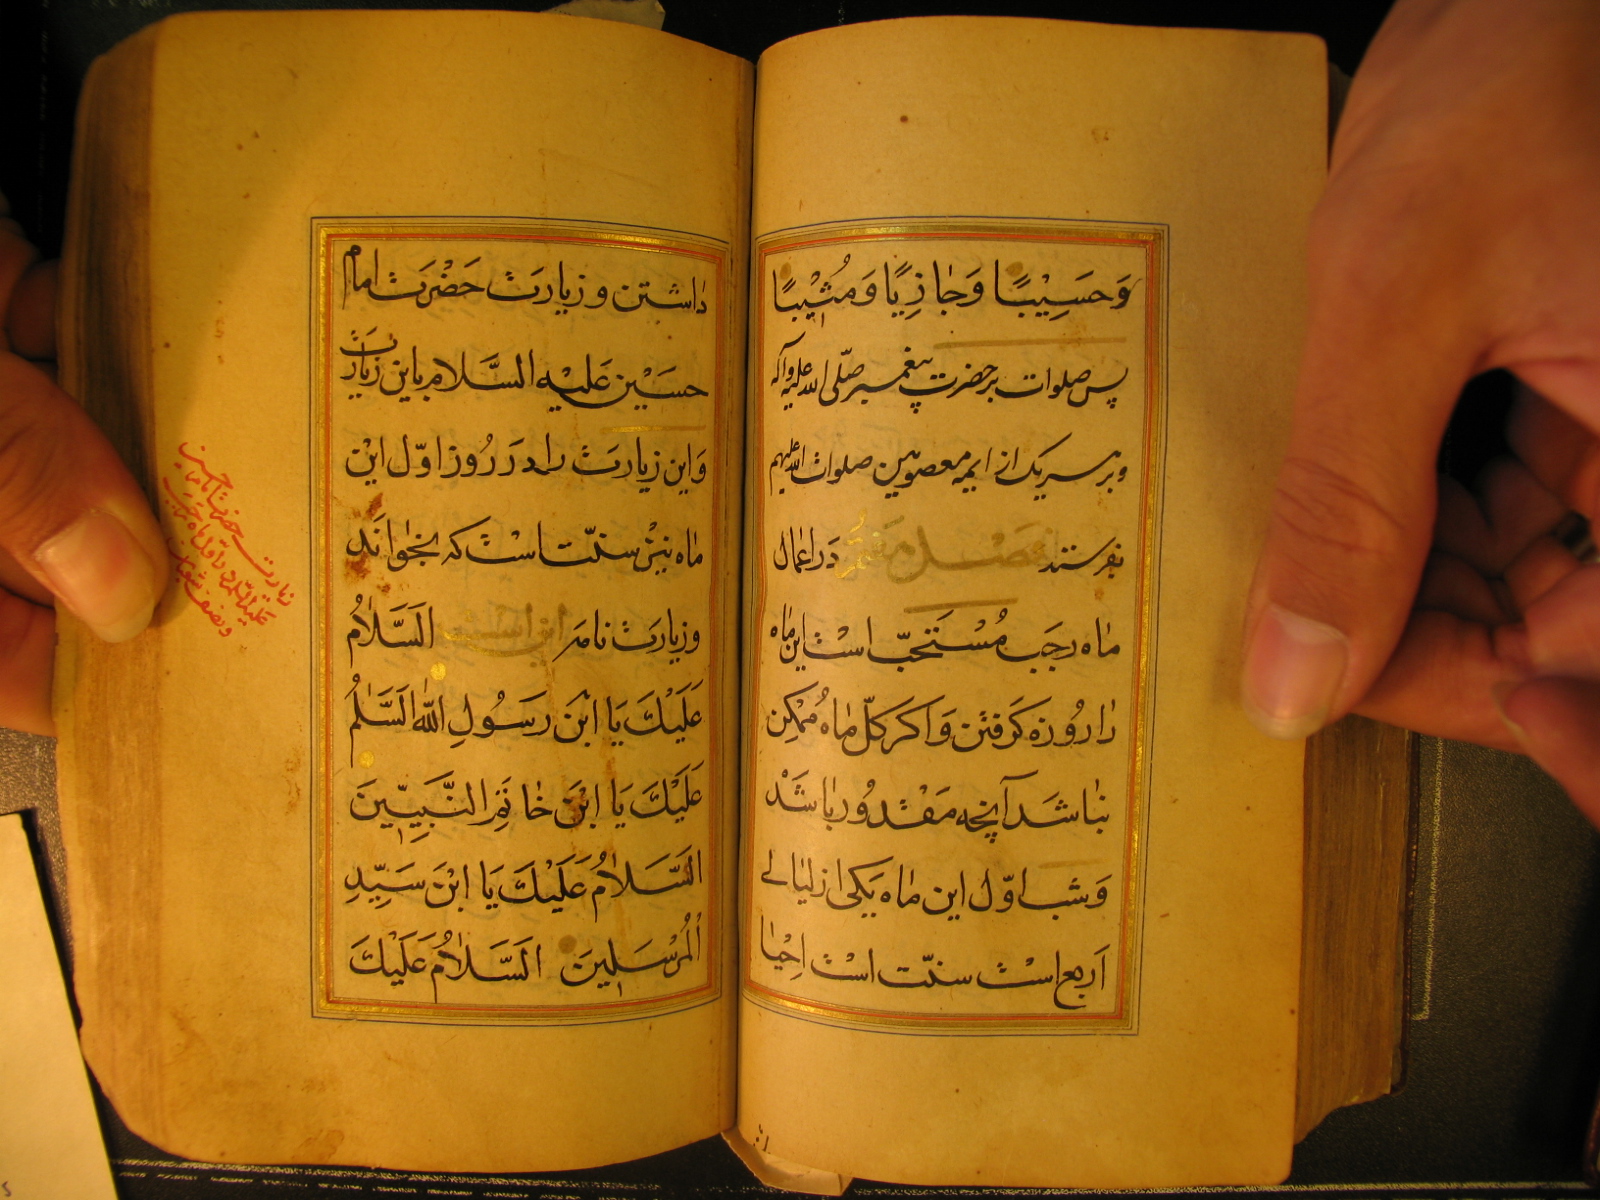 وَحَسِیْبًا وَجٰازِیًا وَمُثِیْبًا
پس صلوات بر حضرت پیغمبر صلّی الله علیه وآله
وبر هر یک از ایمه معصومین صلوات الله علیهم
بفرستند فصل هفتم دَر اعمال
مٰاه رجَب مُسْتَحَبّ است این مٰاه
رٰا رُوزه کَرفتن وَاکر کلّ مٰاه مُمْکِن
نبٰاشَد آنچه مَقْدُور بٰاشَدْ
وَشب اوّل این مٰاه یَکی از لیٰالے
اَربع اسْت سنّت اسْت اِحْیٰا
دٰاشتن و زیارت حَضْرَت امام
حسَیْن عَلیْه السَّلام باین زیارت
وَاین زیارت رٰا دَر رُوز اوّل ایْن
مٰاه نیْز سنّت اسْت که بخوٰانَد
وزیارت نامه این است اَلسَّلاٰمُ
عَلَیْكَ یَا ابْنَ رَسُولِ اللّٰهِ اَلسَّلٰمُ
عَلَیْكَ یَا ابْنَ خٰاتَمِ النَّبِیّٖینَ
اَلسَّلاٰمُ عَلَیْكَ یَا ابْنَ سَیِّدِ
الْمُرْسَلٖینَ اَلسَّلاٰمُ عَلَیْكَ
زیارت حضرت امام حسین
علیه السلام در اوّل ماه رجب
و نصف شعبان